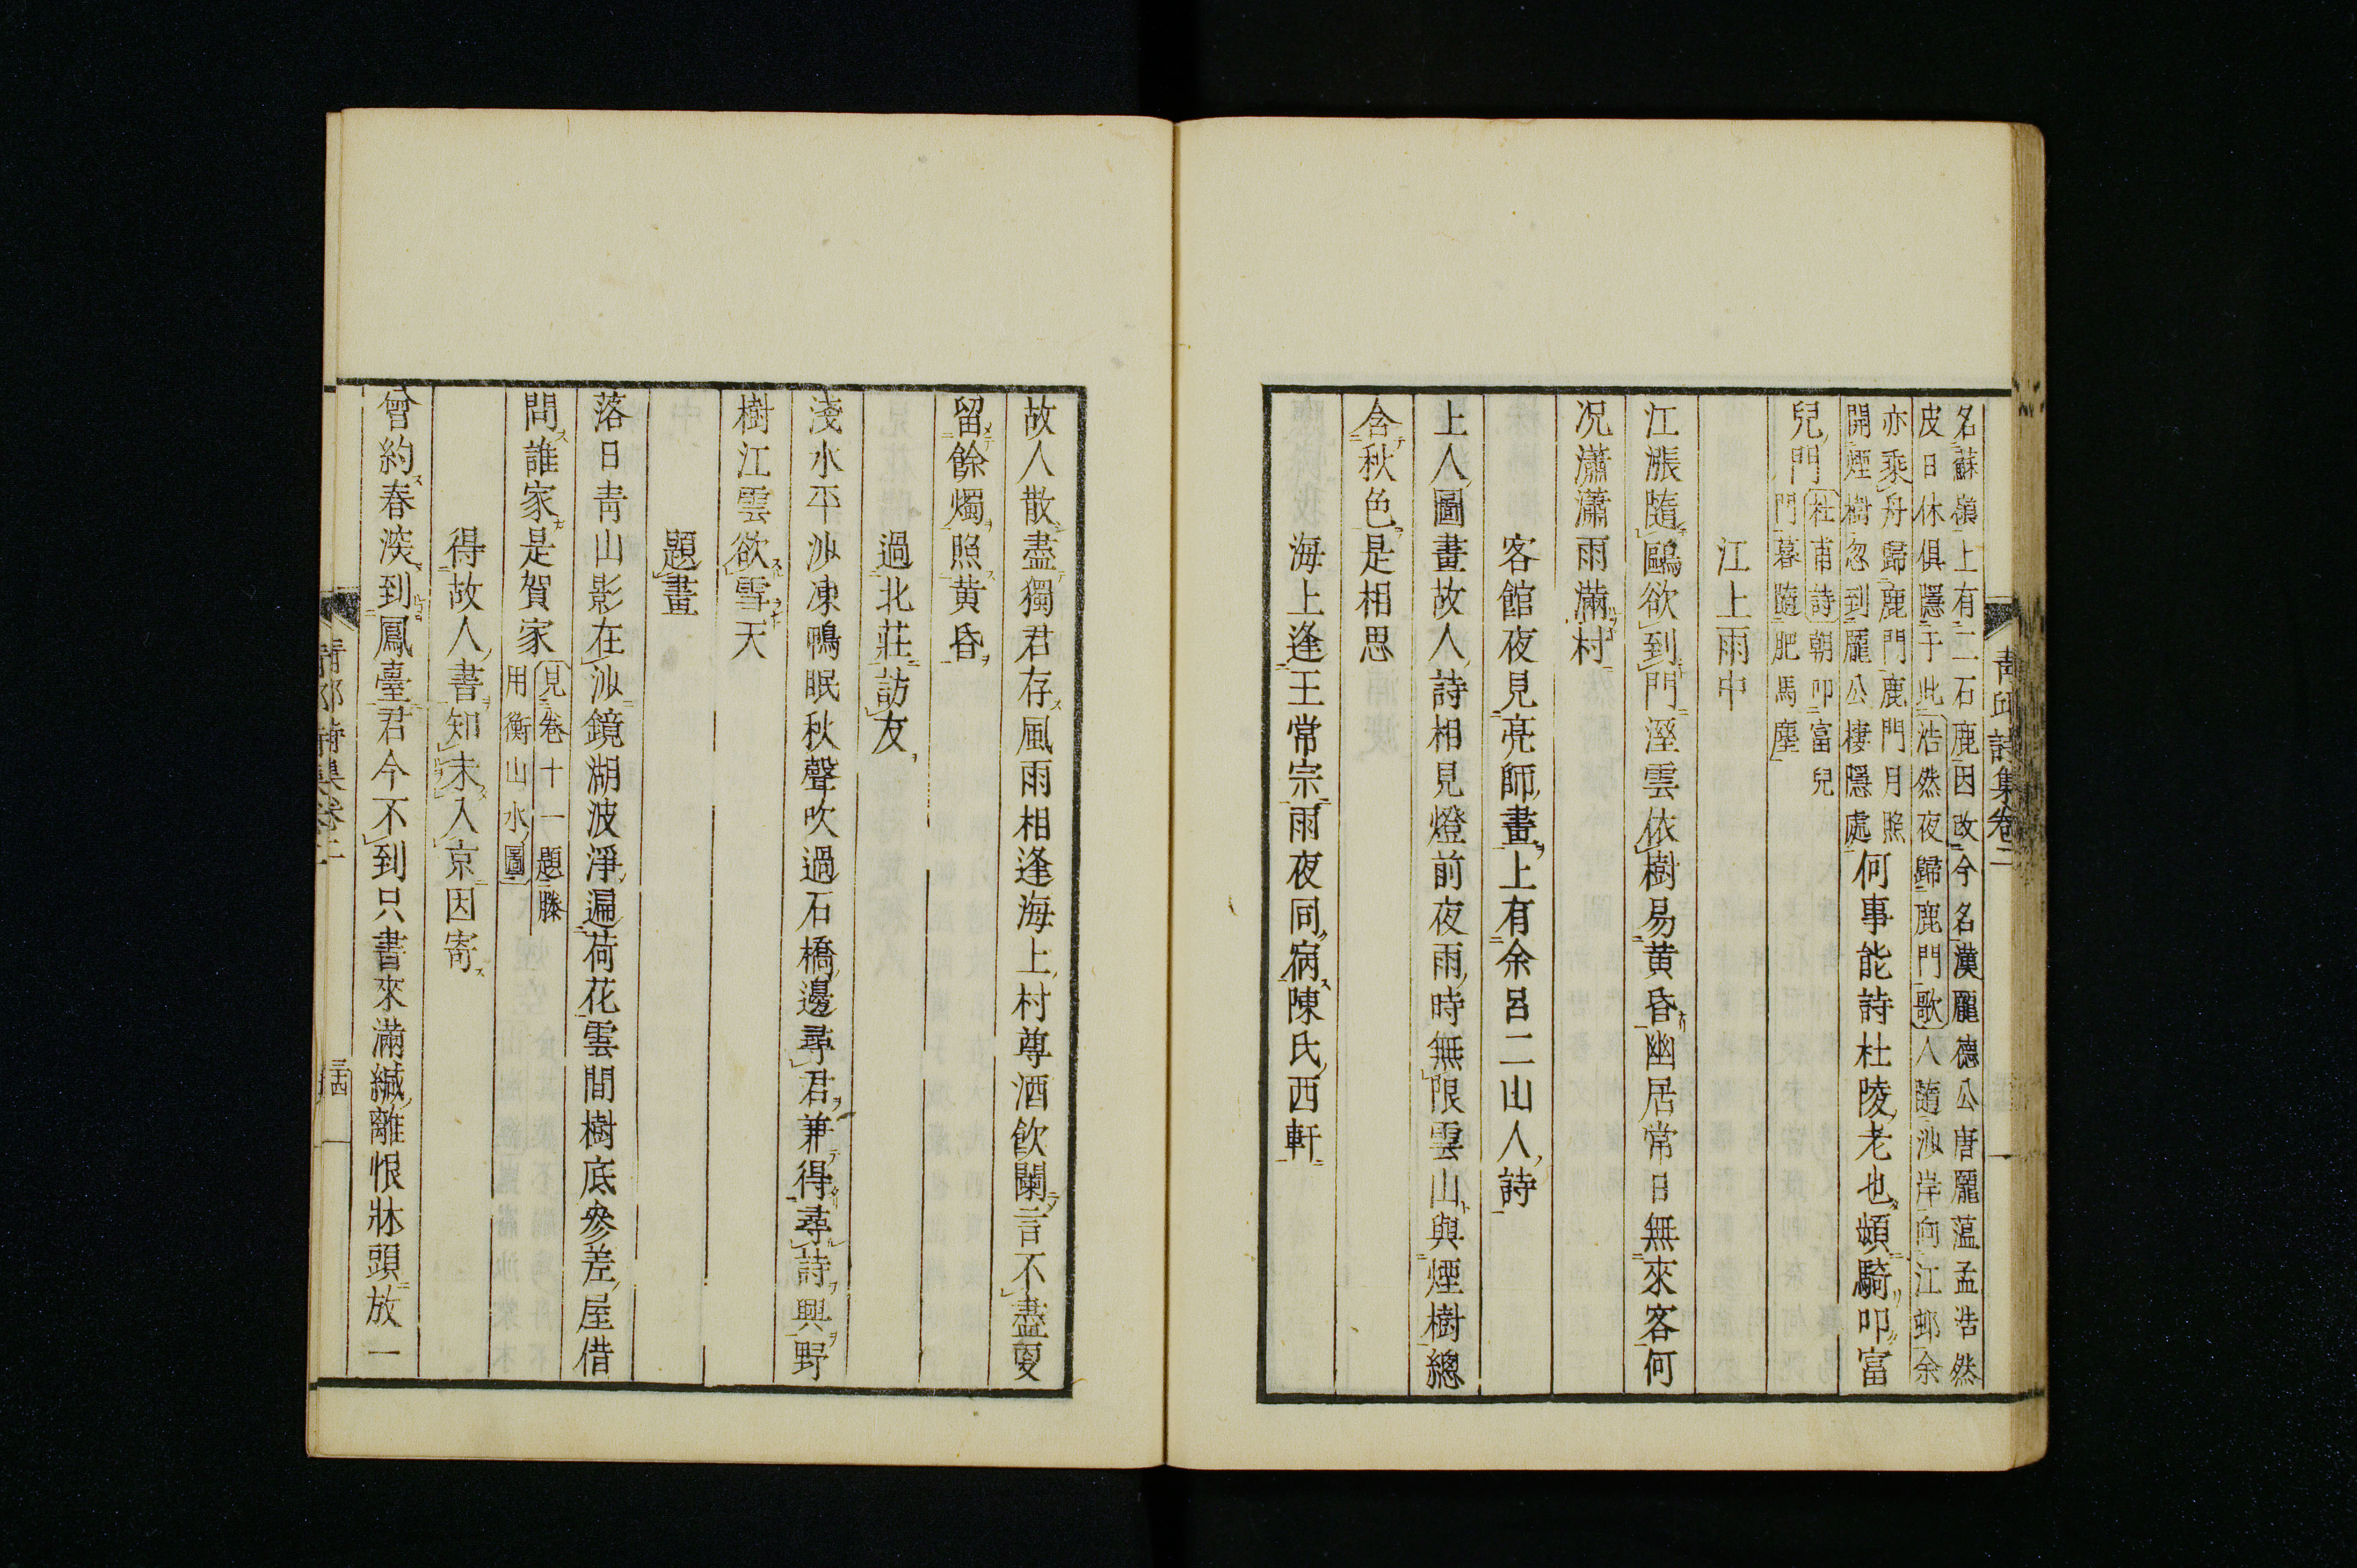 青邱詩集卷二
名蘇嶺上有二石鹿因改今名漢龐德公唐龐蘊孟浩然
皮日休俱隱于此浩然夜歸鹿門歌人隨沙岸向江邨余
亦乘舟歸鹿門鹿門月照
開煙樹忽到龐公棲隱處
何事能詩杜陵老也頻騎叩富
兒門
杜甫詩朝叩富兒
門暮隨肥馬塵
江上雨中
江漲隨鷗欲到門溼雲依樹易黄昏幽居常日無來客何
况瀟瀟雨滿村
客館夜見亮師畫上有余呂二山人詩
上人圖畫故人詩相見燈前夜雨時無限雲山與煙樹總
含秋色是相思
海上逢王常宗雨夜同宿陳氏西軒
故人散盡獨君存風雨相逢海上村尊酒飲闌言不盡更
留餘燭照黄昏
過北莊訪友
淺水平沙凍鴨眠秋聲吹過石橋邊尋君兼得尋詩興野
樹江雲欲雪天
題畫
落日靑山影在沙鏡湖波淨遍荷花雲間樹底參差屋借
問誰家是賀家
見卷十一題滕
用衡山水圖
得故人書知未入京因寄
曾約春淡到鳳臺君今不到只書來滿緘離恨牀頭放一
青邱詩集卷二
三十四